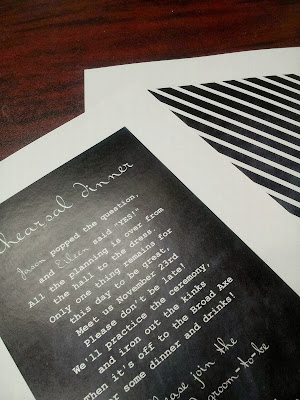 hearsal dinner
Jason popped the question,
and Eileen said "YES!"
All the planning is over from
the hall to the dress.
Only one thing remains for
this day to be great,
Meet us November 23rd
Please don't be late!
We'll practice the ceremony,
and iron out the kinks
hen it's off to the Broad Axe
or some dinner and drinks!
lease join the
groom-to-be